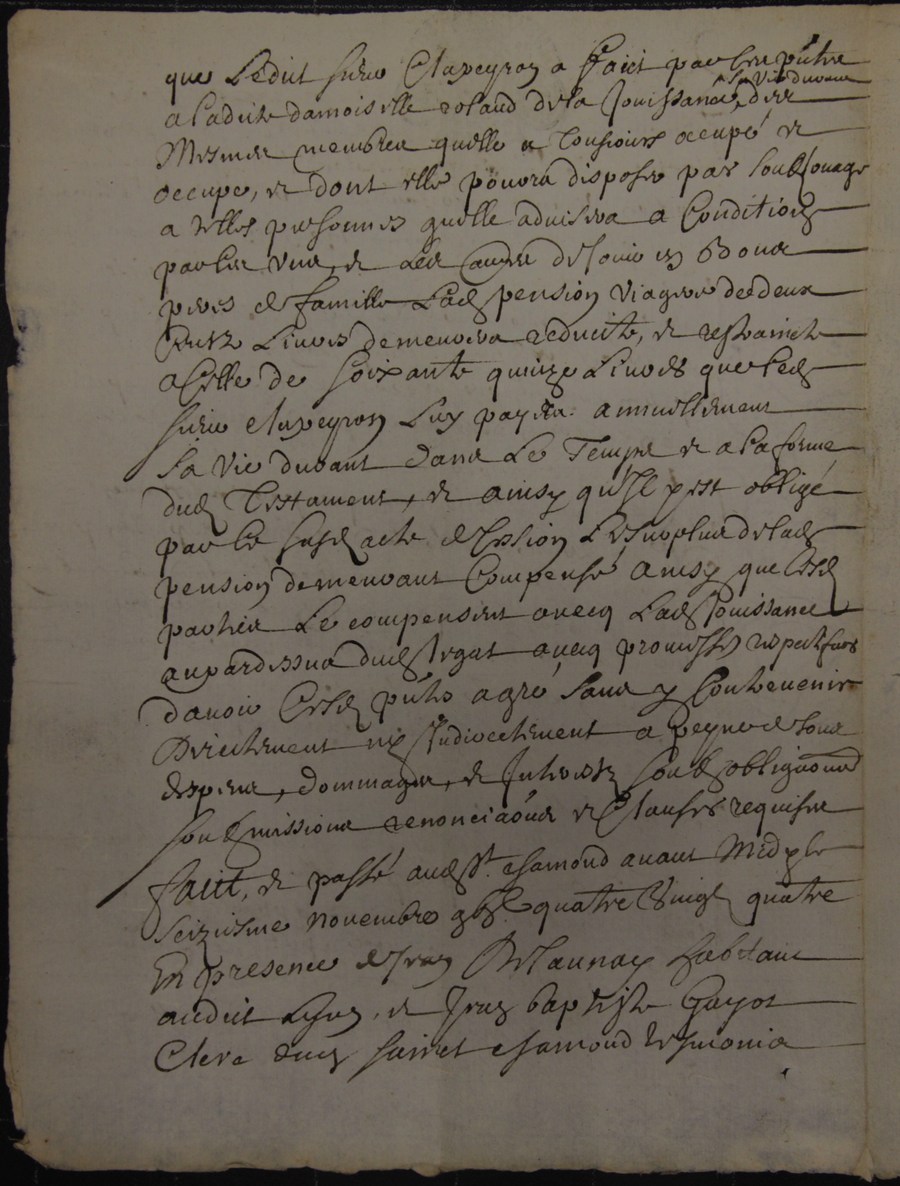 que Ledit sieur Clapeyron a faict par les p̄ntes
sa vie durant
a ladicte damoiselle roland de la Jouissance des
Mesmes membres quelle a tousiours occupé et
occupe, et dont elle pourra disposer par
a telles personnes quelle advisera a Condition
par les uns et les de Jouir en bons
peres de famille Lad pension viagere de deux
cents Livres demeurera reduicte, et restrainte
a Celle de soixante quinze Livres que led
sieur Clapeyron Luy payera annuellement
sa vie durant dans Le Temps et a la forme
dud Testament, et ainsy qu'Il y est obligé
par le susd acte de Cession Le surplus de lad
pension demeurant Compensé ainsy que lesd
parties Le compensent avecq Lad Jouissance
au pardessus dud Legat avecq promesses respectives
davoir Cesd p̄ntes a gré sans y Contrevenir
Directement ny Indirectement a peyne de tous
despens, dommages, et Interestz soub obliga͠ons
soubmissions renoncia͠ons et Clauses requises
faict, et passé aud St. chamond avant Midy le
seiziesme novembre gbjc quatre Vingt quatre
En presence de Jean Delaunay habitant
audict Lyon, et Jean baptiste Gayot
Clerc dud sainct chamond tesmoins